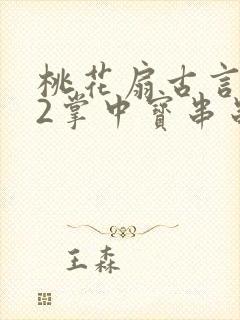 桃花扇古言
2掌中寶串
王森